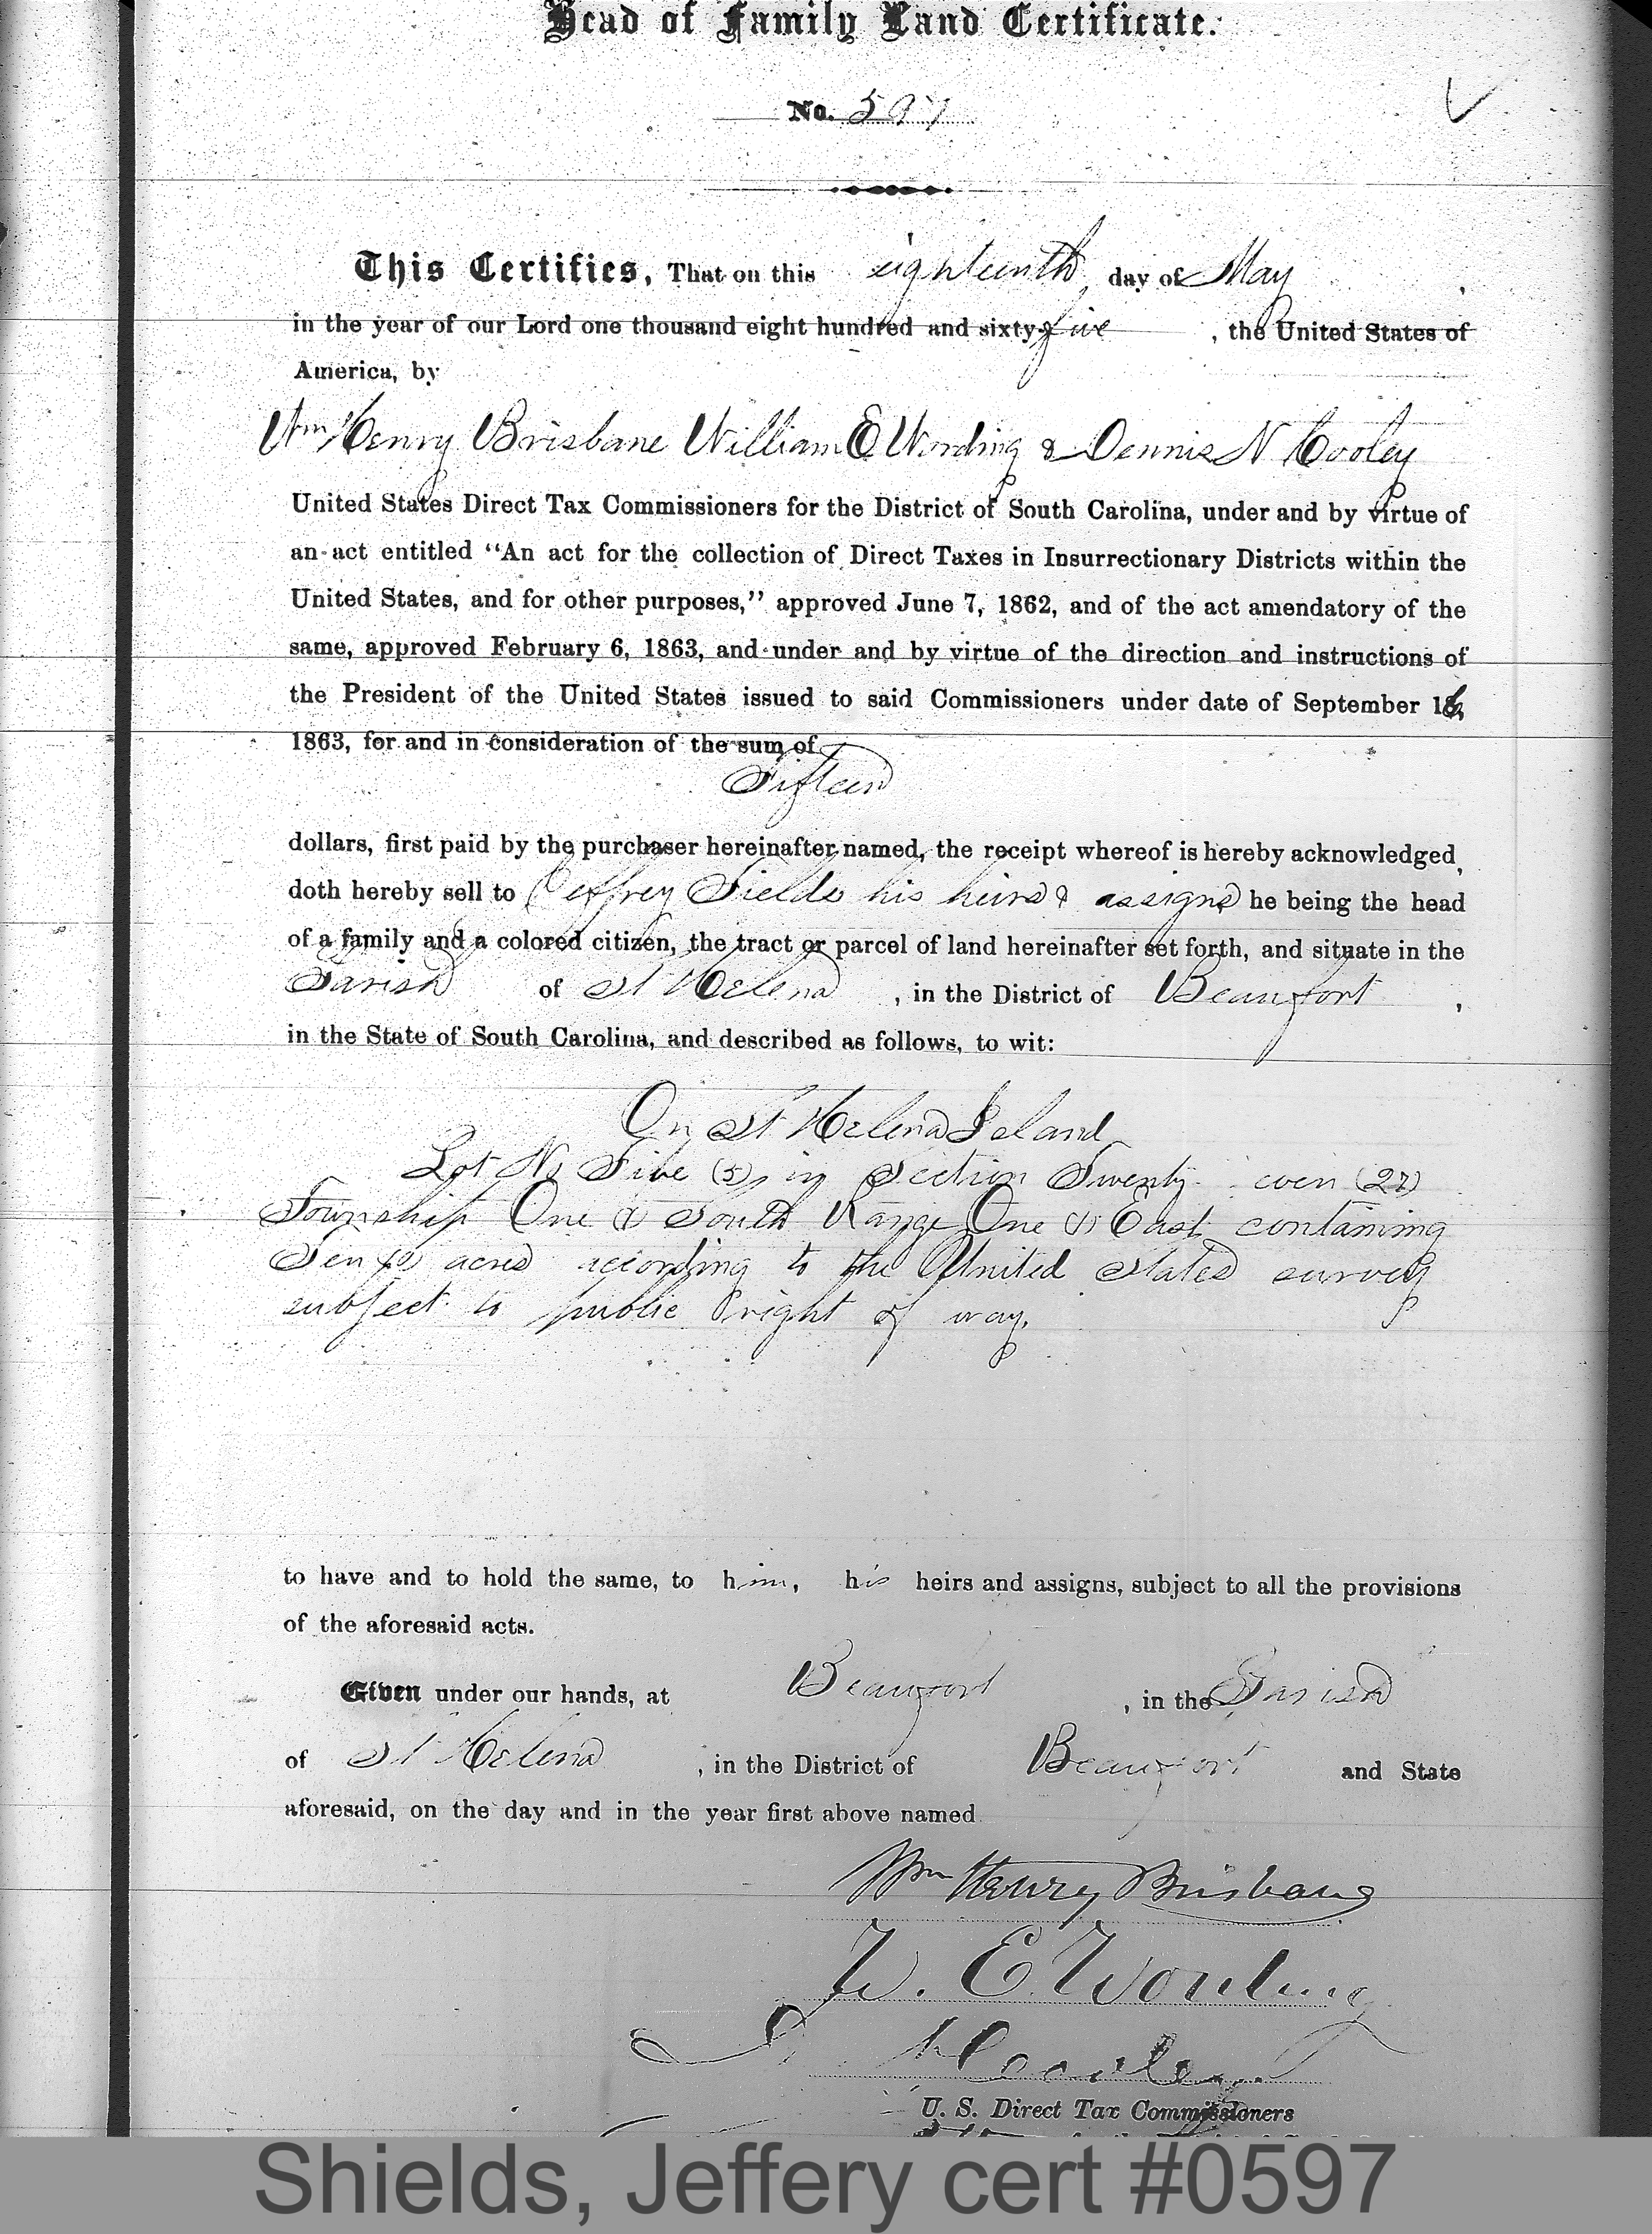 Head of Family Land Certificate.
No. 597
This Certifies, That on this eighteenth day of May,
in the year of our Lord one thousand eight hundred and sixty-five, the United States of
America, by
Wm Henry Brisbane William E Wording & Dennis N Cooley
United States Direct Tax Commissioners for the District of South Carolina, under and by virtue of
an act entitled “An act for the collection of Direct Taxes in Insurrectionary Districts within the
United States, and for other purposes,” approved June 7, 1862, and of the act amendatory of the
same, approved February 6, 1863, and under and by virtue of the direction and instructions of
the President of the United States issued to said Commissioners under date of September 16,
1863, for and in consideration of the sum of
Fifteen
dollars, first paid by the purchaser hereinafter named, the receipt whereof is hereby acknowledged,
doth hereby sell to Jeffrey Sields his heirs & assigns he being the head
of a family and a colored citizen, the tract or parcel of land hereinafter set forth, and situate in the
Parish of St Helena, in the District of Beaufort,
in the State of South Carolina, and described as follows, to wit:
On St Helena Island
Lot No Five (5) in Section Twenty even (27)
Township One (1) South Range One (1) East containing
Ten (10) acres according to the United States survey
subject to public right of way.
to have and to hold the same, to him, his heirs and assigns, subject to all the provisions
of the aforesaid acts.
Given under our hands, at Beaufort, in the Parish
of St Helena, in the District of Beaufort and State
aforesaid, on the day and in the year first above named.
Wm Henry Brisbane
W. E. Wording
D. N. Cooley
U. S. Direct Tax Commissioners
Shields, Jeffery cert #0597